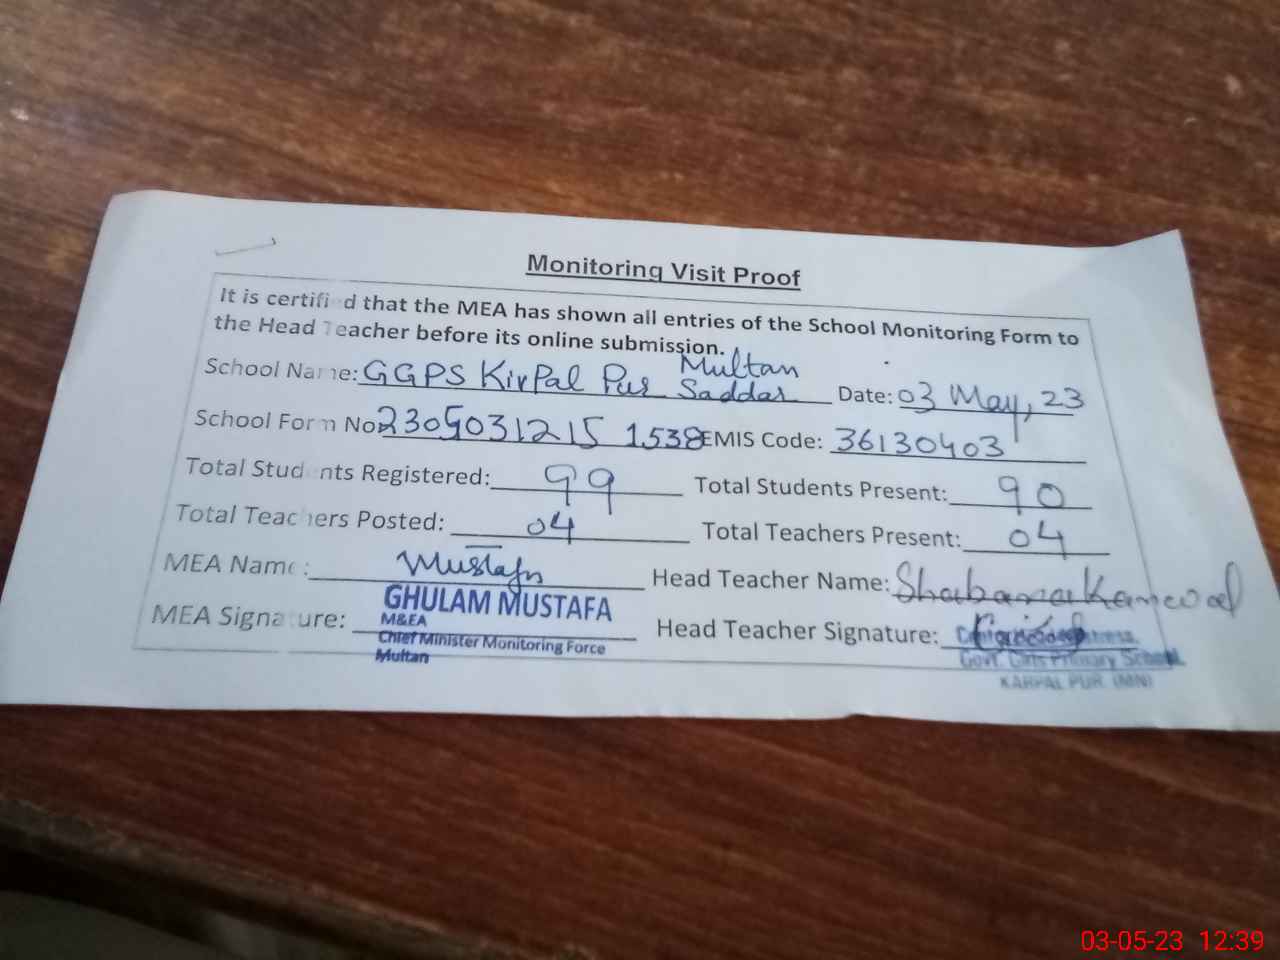 Monitoring Visit Proof
It is certified that the MEA has shown all entries of the School Monitoring Form to
the Head Teacher before its online submission.
School Name: GGPS KirPal Pur Multan Saddar Date: 03 May, 23
School Form No: 2305031215 1538 EMIS Code: 36130403
Total Students Registered: 99 Total Students Present: 90
Total Teachers Posted: 04 Total Teachers Present: 04
MEA Name: Mustafa Head Teacher Name: Shabana Kanwal
MEA Signature: Head Teacher Signature:
GHULAM MUSTAFA
M&EA
Chief Minister Monitoring Force
Multan
Govt. Girls Primary School
KARPAL PUR (MN)
03-05-23 12:39